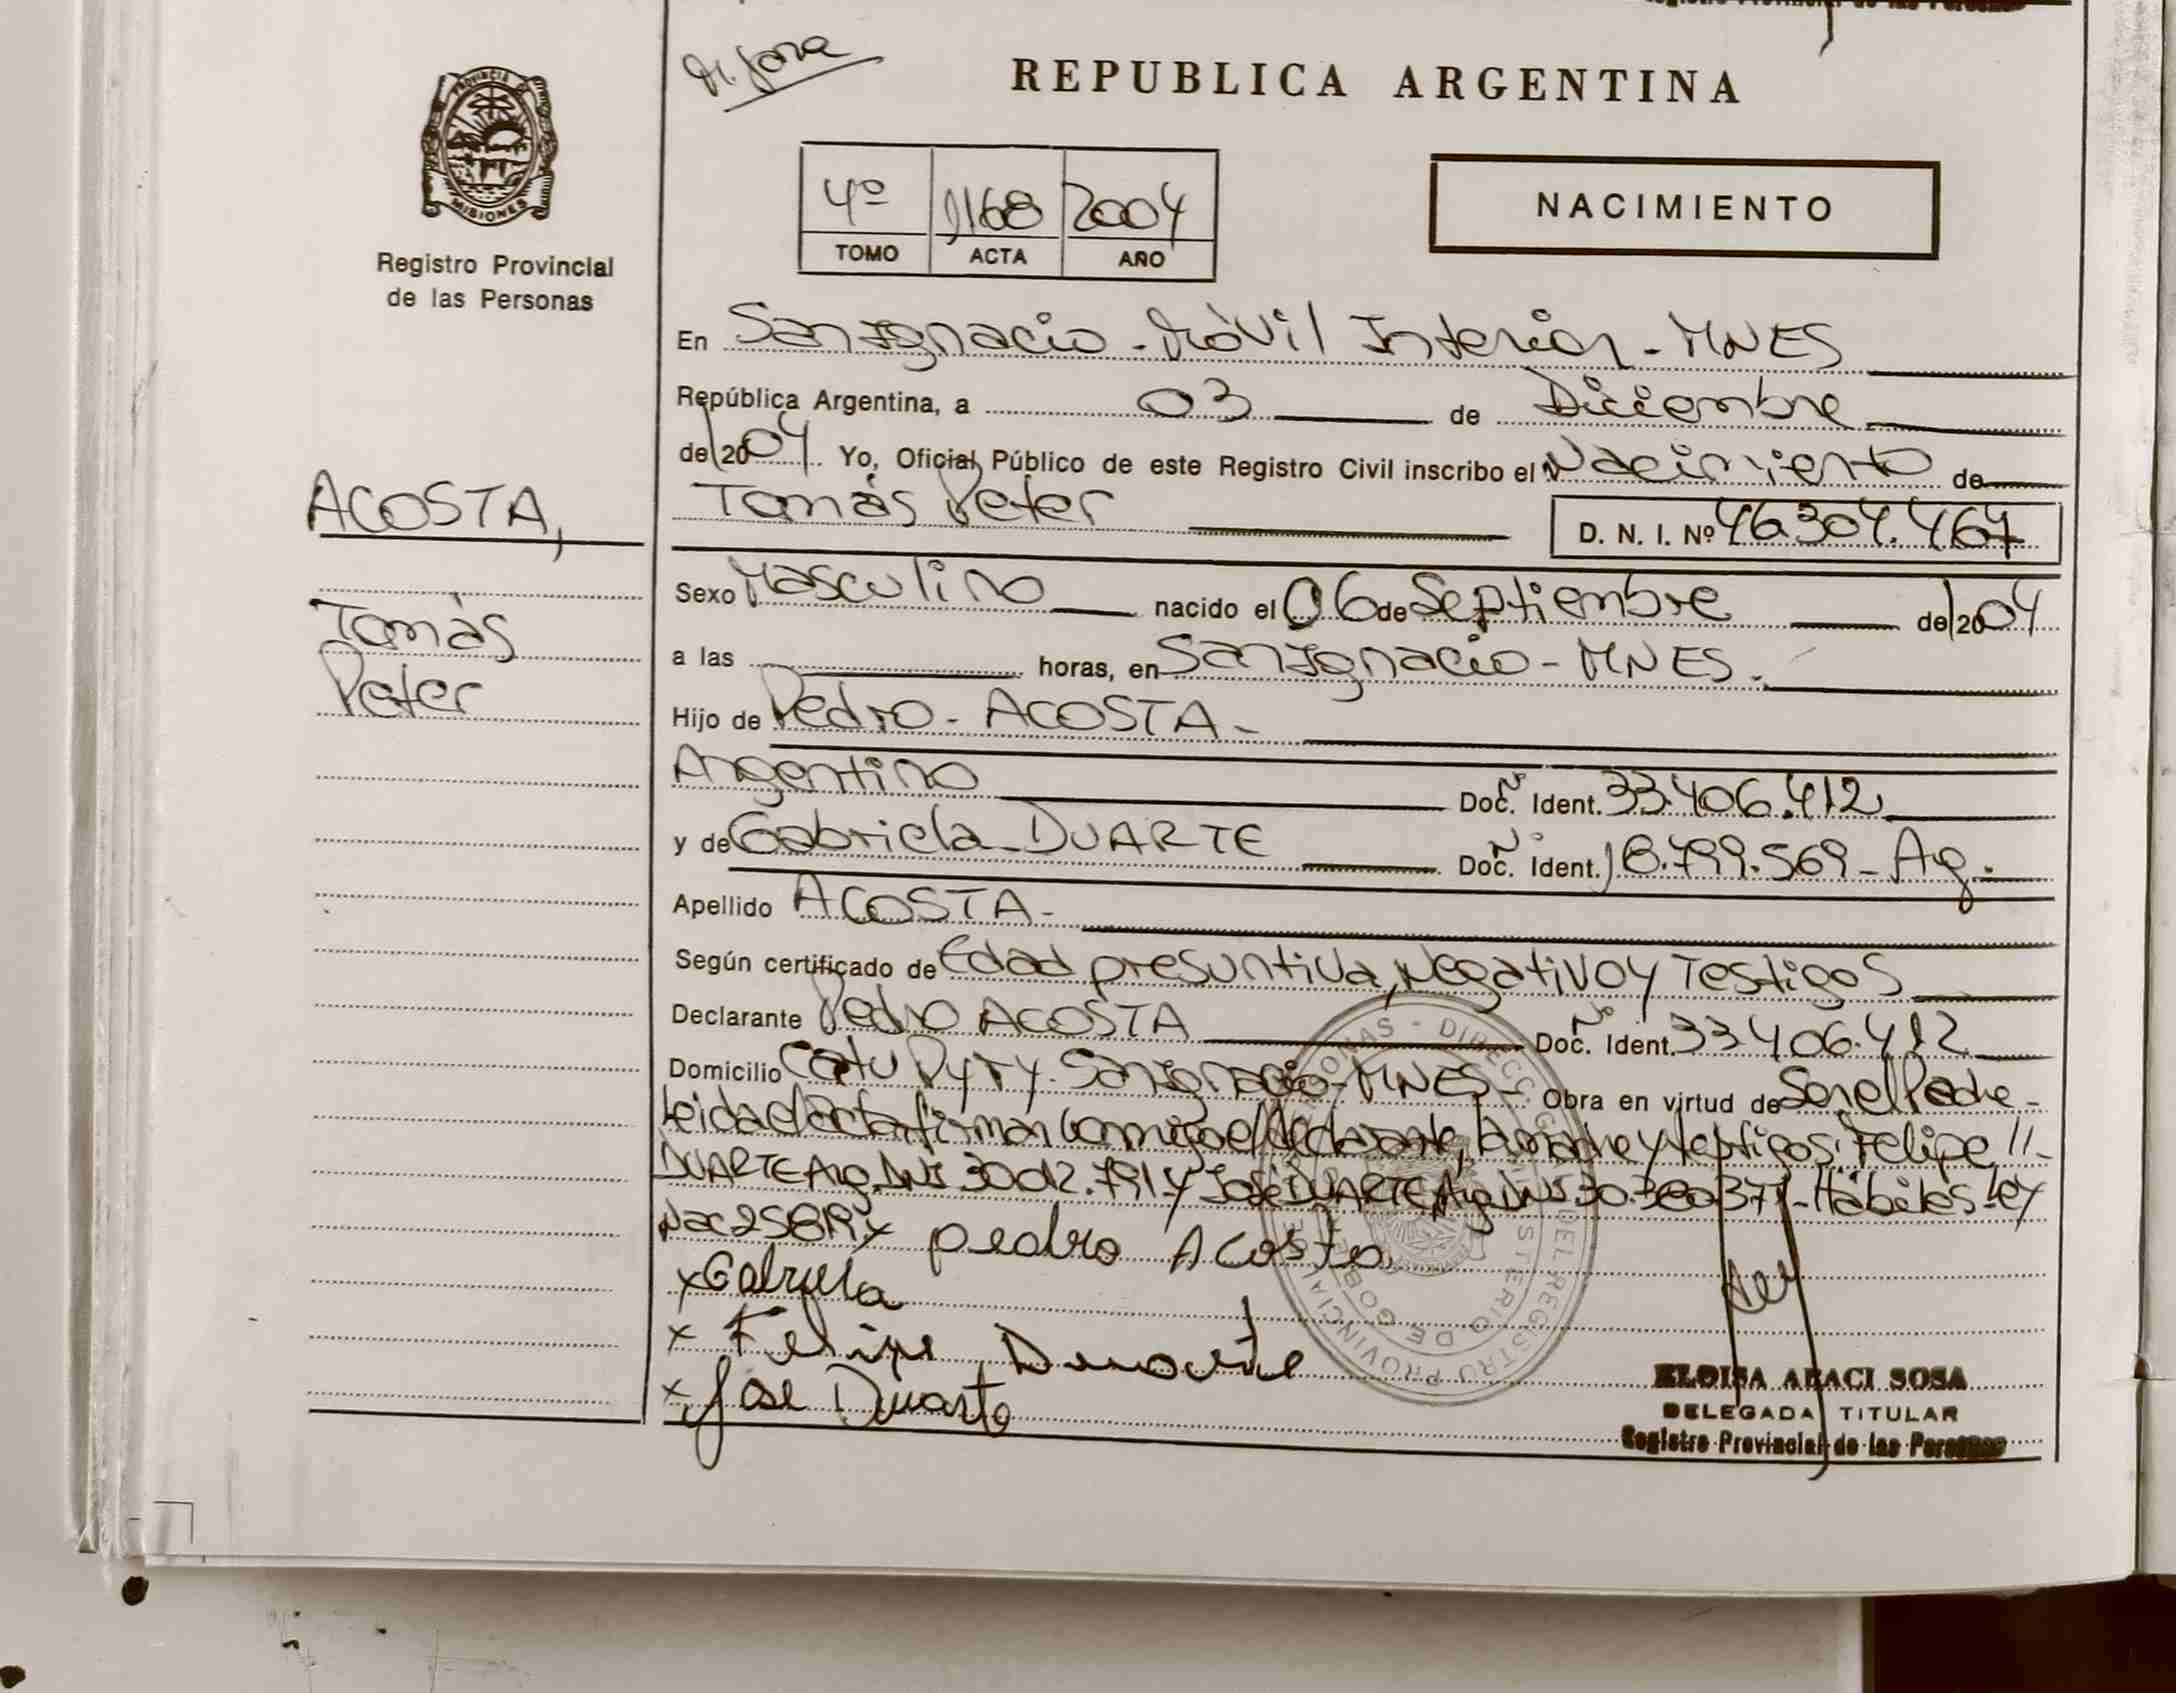 PROVINCIA
MISIONES
Registro Provincial
de las Personas
REPUBLICA ARGENTINA
4º 1168 2004
TOMO ACTA AÑO
NACIMIENTO
En San Ignacio - Móvil Interior - MNES
República Argentina, a 03 de Diciembre
de 2004 Yo, Oficial Público de este Registro Civil inscribo el Nacimiento de
Tomás Peter
D. N. I. Nº 46.304.467
ACOSTA,
Tomás
Peter
Sexo Masculino nacido el 06 de Septiembre de 2004
a las horas, en San Ignacio - MNES.
Hijo de Pedro - ACOSTA -
Argentino Doc. Nº Ident. 33.406.412
y de Gabriela - DUARTE Doc. Nº Ident. 18.799.569 - Ag.
Apellido ACOSTA -
Según certificado de Edad presuntiva, Negativo y Testigos
Declarante Pedro ACOSTA Doc. Nº Ident. 33.406.412
Domicilio Catu Pyry - San Ignacio - MNES - Obra en virtud de Ser el Padre -
Leida el Acta firman conmigo el declarante, la madre y testigos: Felipe //-
DUARTE Arg. DNI 30.012.791 y José DUARTE, Arg. DNI 30.380.371 - Hábiles - Ley
Nac 25819. x pedro Acosta
x Gabriela
x Felipe Duarte
x Jose Duarte
ELOISA ARACI SOSA
DELEGADA TITULAR
Registro Provincial de las Personas